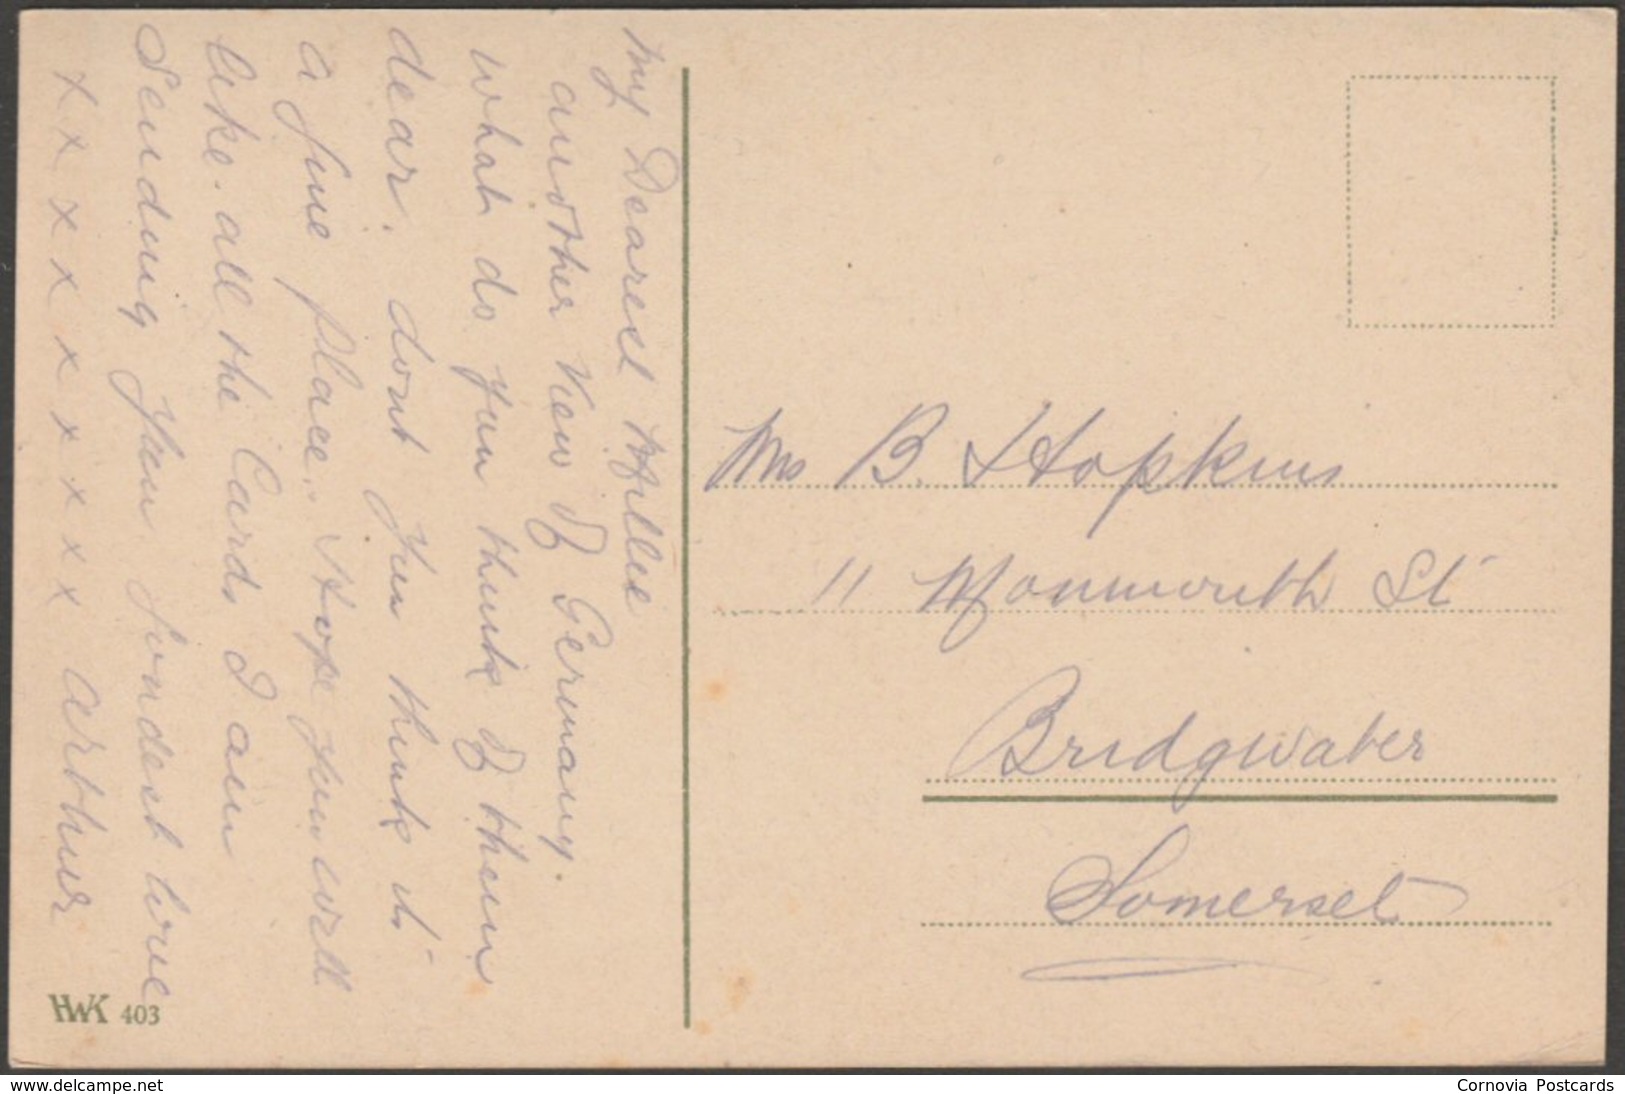 My Dearest Millie
another View of Germany.
what do you think of them
dear. dont you think it
a fine place. Hope you will
like all the Cards I am
Sending you fondest love
x x x x x x x x x Arthur
Mrs B. Hopkins
11 Monmouth St
Bridgwater
Somerset
HWK 403
www.delcampe.net
Cornovia Postcards